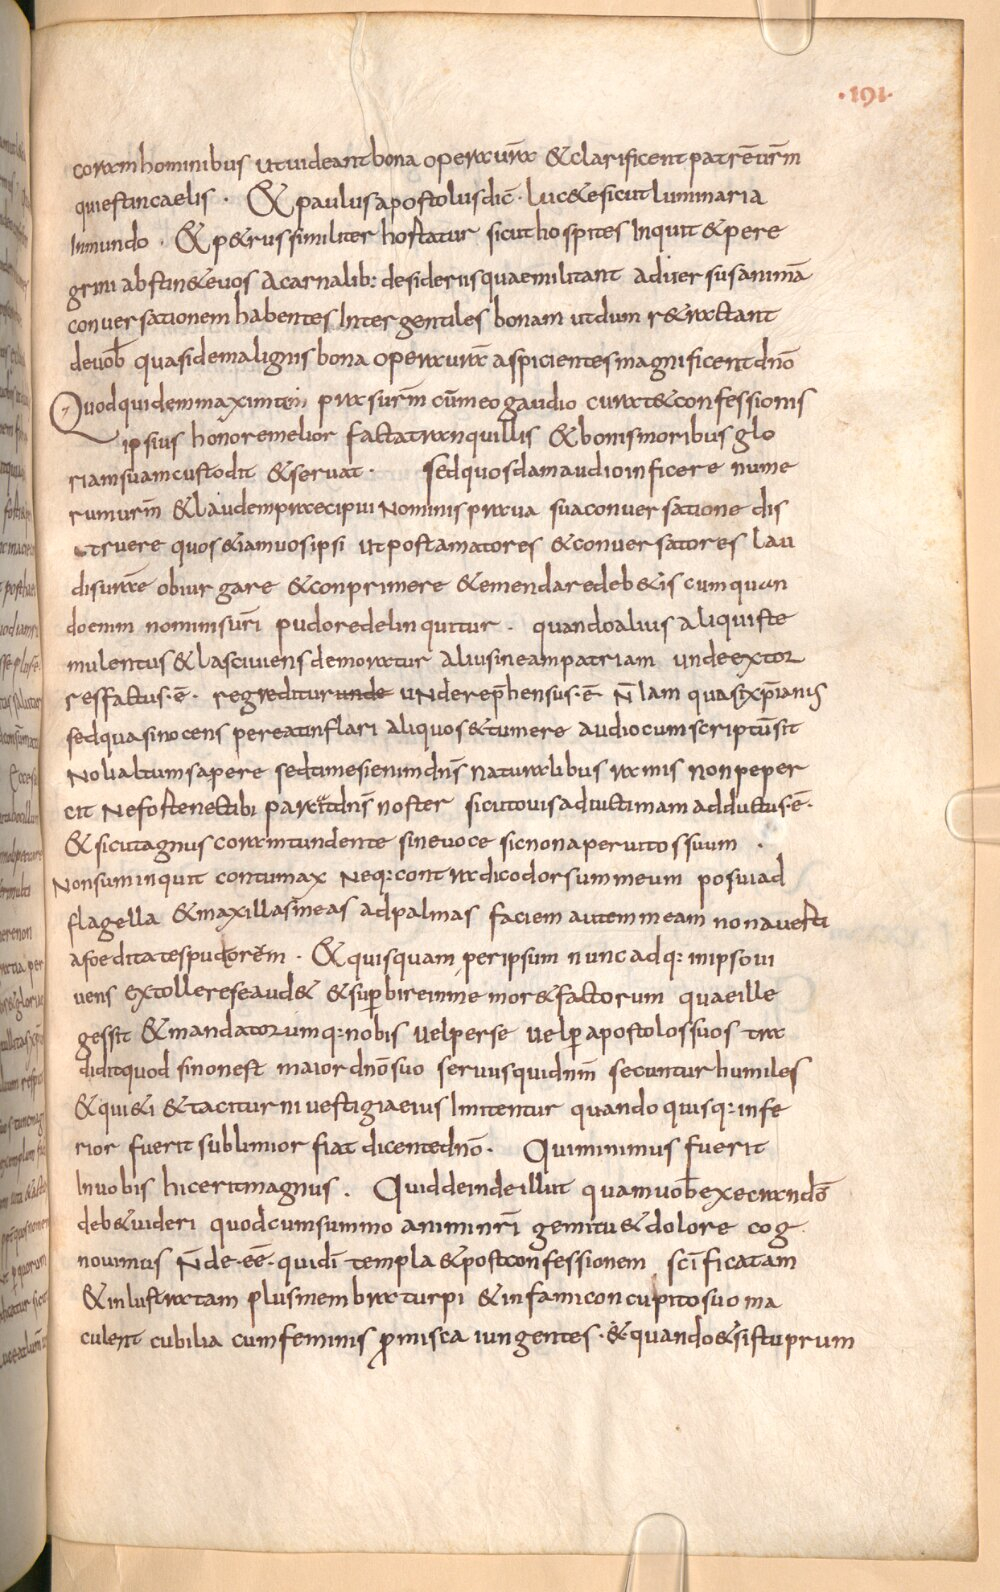 ·191·
coram hominibus ut uideant bona opera ur̄a & clarificent patrē ur̄m
qui est in caelis · & paulus apostolus dic̄ · luc&e sicut luminaria
In mundo · & p&rus similiter hostatur sicut hospites Inquit & pere
grini abstin&e uos a carnalib: desideriis quae militant aduersus animā
conuersationem habentes Inter gentiles bonam ut dum r&ractant
de uob̄ quasi de malignis bona opera ur̄a aspicientes magnificent dn̄o
Quod quidem maximam pars ur̄m cū meo gaudio curat & confessionis
ipsius honore melior facta tranquillis & bonis moribus glo
riam suam custodit & seruat · sed quosdam audio inficere nume
rum ur̄m & laudem praecipui Nominis praua sua conuersatione dis
truere quos &iam uos ipsi ut post amatores & conuersatores lau
dis ur̄ae obiurgare & conprimere & emendare deb&is cum quan
do enim nominis ur̄i pudore delinquitur · quando alius aliquis te
mulentus & lasciuiens demoratur alius in eam patriam unde extor
res factus · ē · regreditur unde uNde rep̄hensus · ē N̄ Iam quasi xp̄ianus
sed quasi nocens pereat inflari aliquos & tumere audio cum scriptū sit
Noli altum sapere sed time si enim dn̄s naturalibus ramis non peper
cit Ne forte nec tibi parcat dn̄s noster sicut ouis ad uictimam adductus · ē ·
& sicut agnus coram tundente sine uoce sic non aperuit os suum ·
Non sum inquit contumax Neq: contradico dorsum meum posui ad
flagella & maxillas meas ad palmas faciem autem meam non auerti
a foeditate sputorem · & quisquam per ipsum nunc ad q: in ipso ui
uens extollere se aud& & sup̄bire inmemor & factorum quae ille
gessit & mandatorum q: nobis uel per se uel p̄ apostolos suos tra
didit quod si non est maior dn̄o suo seruus qui dn̄m secuntur humiles
& qui&i & taciturni uestigia eius Imitentur quando quisq: infe
rior fuerit sublimior fiat dicente dn̄o · Qui minimus fuerit
In uobis hic erit magnus · Quid deinde illut quam uob̄ execrandō
deb& uideri quod cum summo animi nr̄i gemitu & dolore cog
nouimus N̄ de · eē · qui dī templa & post confessionem sc̄ificatam
& inlustratam plus membra turpi & infami concupito suo ma
culent cubilia cum feminis p̄misca iungentes · & quando &si stuprum